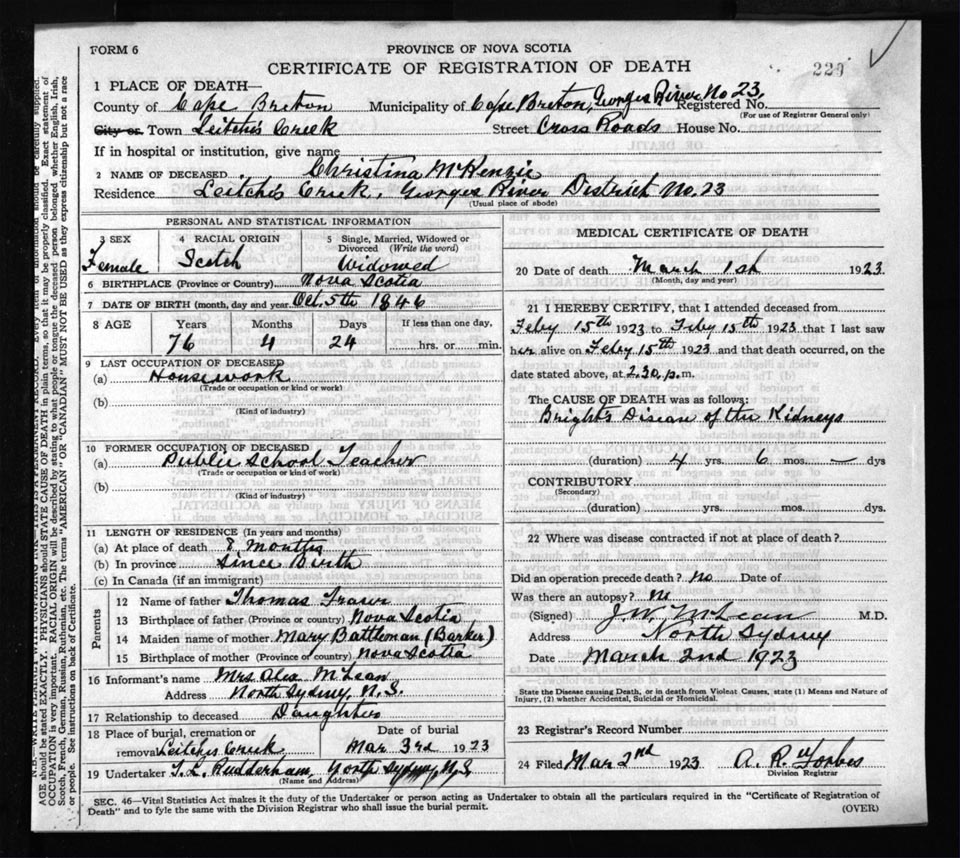 FORM 6
PROVINCE OF NOVA SCOTIA
CERTIFICATE OF REGISTRATION OF DEATH
229
1 PLACE OF DEATH—
County of Cape Breton Municipality of Cape Breton, Georges River No 23, Registered No.
(For use of Registrar General only)
City or Town Leitches Creek Street Cross Roads House No.
If in hospital or institution, give name
2 NAME OF DECEASED Christina McKenzie
Residence Leitches Creek, Georges River District No. 23
(Usual place of abode)
PERSONAL AND STATISTICAL INFORMATION
3 SEX 4 RACIAL ORIGIN 5 Single, Married, Widowed or Divorced (Write the word)
Female Scotch Widowed
6 BIRTHPLACE (Province or Country) Nova Scotia
7 DATE OF BIRTH (month, day and year) Oct. 5th 1846
8 AGE Years Months Days If less than one day,
76 4 24 hrs. or min.
9 LAST OCCUPATION OF DECEASED
(a) Housework
(Trade or occupation or kind or work)
(b)
(Kind of industry)
10 FORMER OCCUPATION OF DECEASED
(a) Public School Teacher
(Trade or occupation or kind of work)
(b)
(Kind of industry)
11 LENGTH OF RESIDENCE (In years and months)
(a) At place of death 8 Months
(b) In province Since Birth
(c) In Canada (if an immigrant)
Parents
12 Name of father Thomas
13 Birthplace of father (Province or country) Nova Scotia
14 Maiden name of mother Mary Battleman (Barker)
15 Birthplace of mother (Province or country) Nova Scotia
16 Informant's name Mrs Alex McLean
Address North Sydney, N.S.
17 Relationship to deceased Daughter
18 Place of burial, cremation or removal Leitches Creek, Date of burial Mar. 3rd 1923
19 Undertaker T.L. Rudderham, North Sydney, N.S.
(Name and Address)
MEDICAL CERTIFICATE OF DEATH
20 Date of death March 1st 1923
(Month, day and year)
21 I HEREBY CERTIFY, that I attended deceased from
Feby 15th 1923 to Feby 15th 1923 that I last saw
her alive on Feby 15th 1923 and that death occurred, on the
date stated above, at 2.30 p.m.
The CAUSE OF DEATH was as follows:
Brights Disease of the Kidneys
(duration) 4 yrs. 6 mos. — dys
CONTRIBUTORY
(Secondary)
(duration) yrs. mos. dys.
22 Where was disease contracted if not at place of death?
Did an operation precede death? No Date of
Was there an autopsy? No
(Signed) J.W. McLean M.D.
Address North Sydney
Date March 2nd 1923
State the Disease causing Death, or in death from Violent Causes, state (1) Means and Nature of
Injury, (2) whether Accidental, Suicidal or Homicidal.
23 Registrar's Record Number
24 Filed Mar 2nd 1923 A. R. Forbes
Division Registrar
SEC. 46—Vital Statistics Act makes it the duty of the Undertaker or person acting as Undertaker to obtain all the particulars required in the "Certificate of Registration of
Death" and to fyle the same with the Division Registrar who shall issue the burial permit.
(OVER)